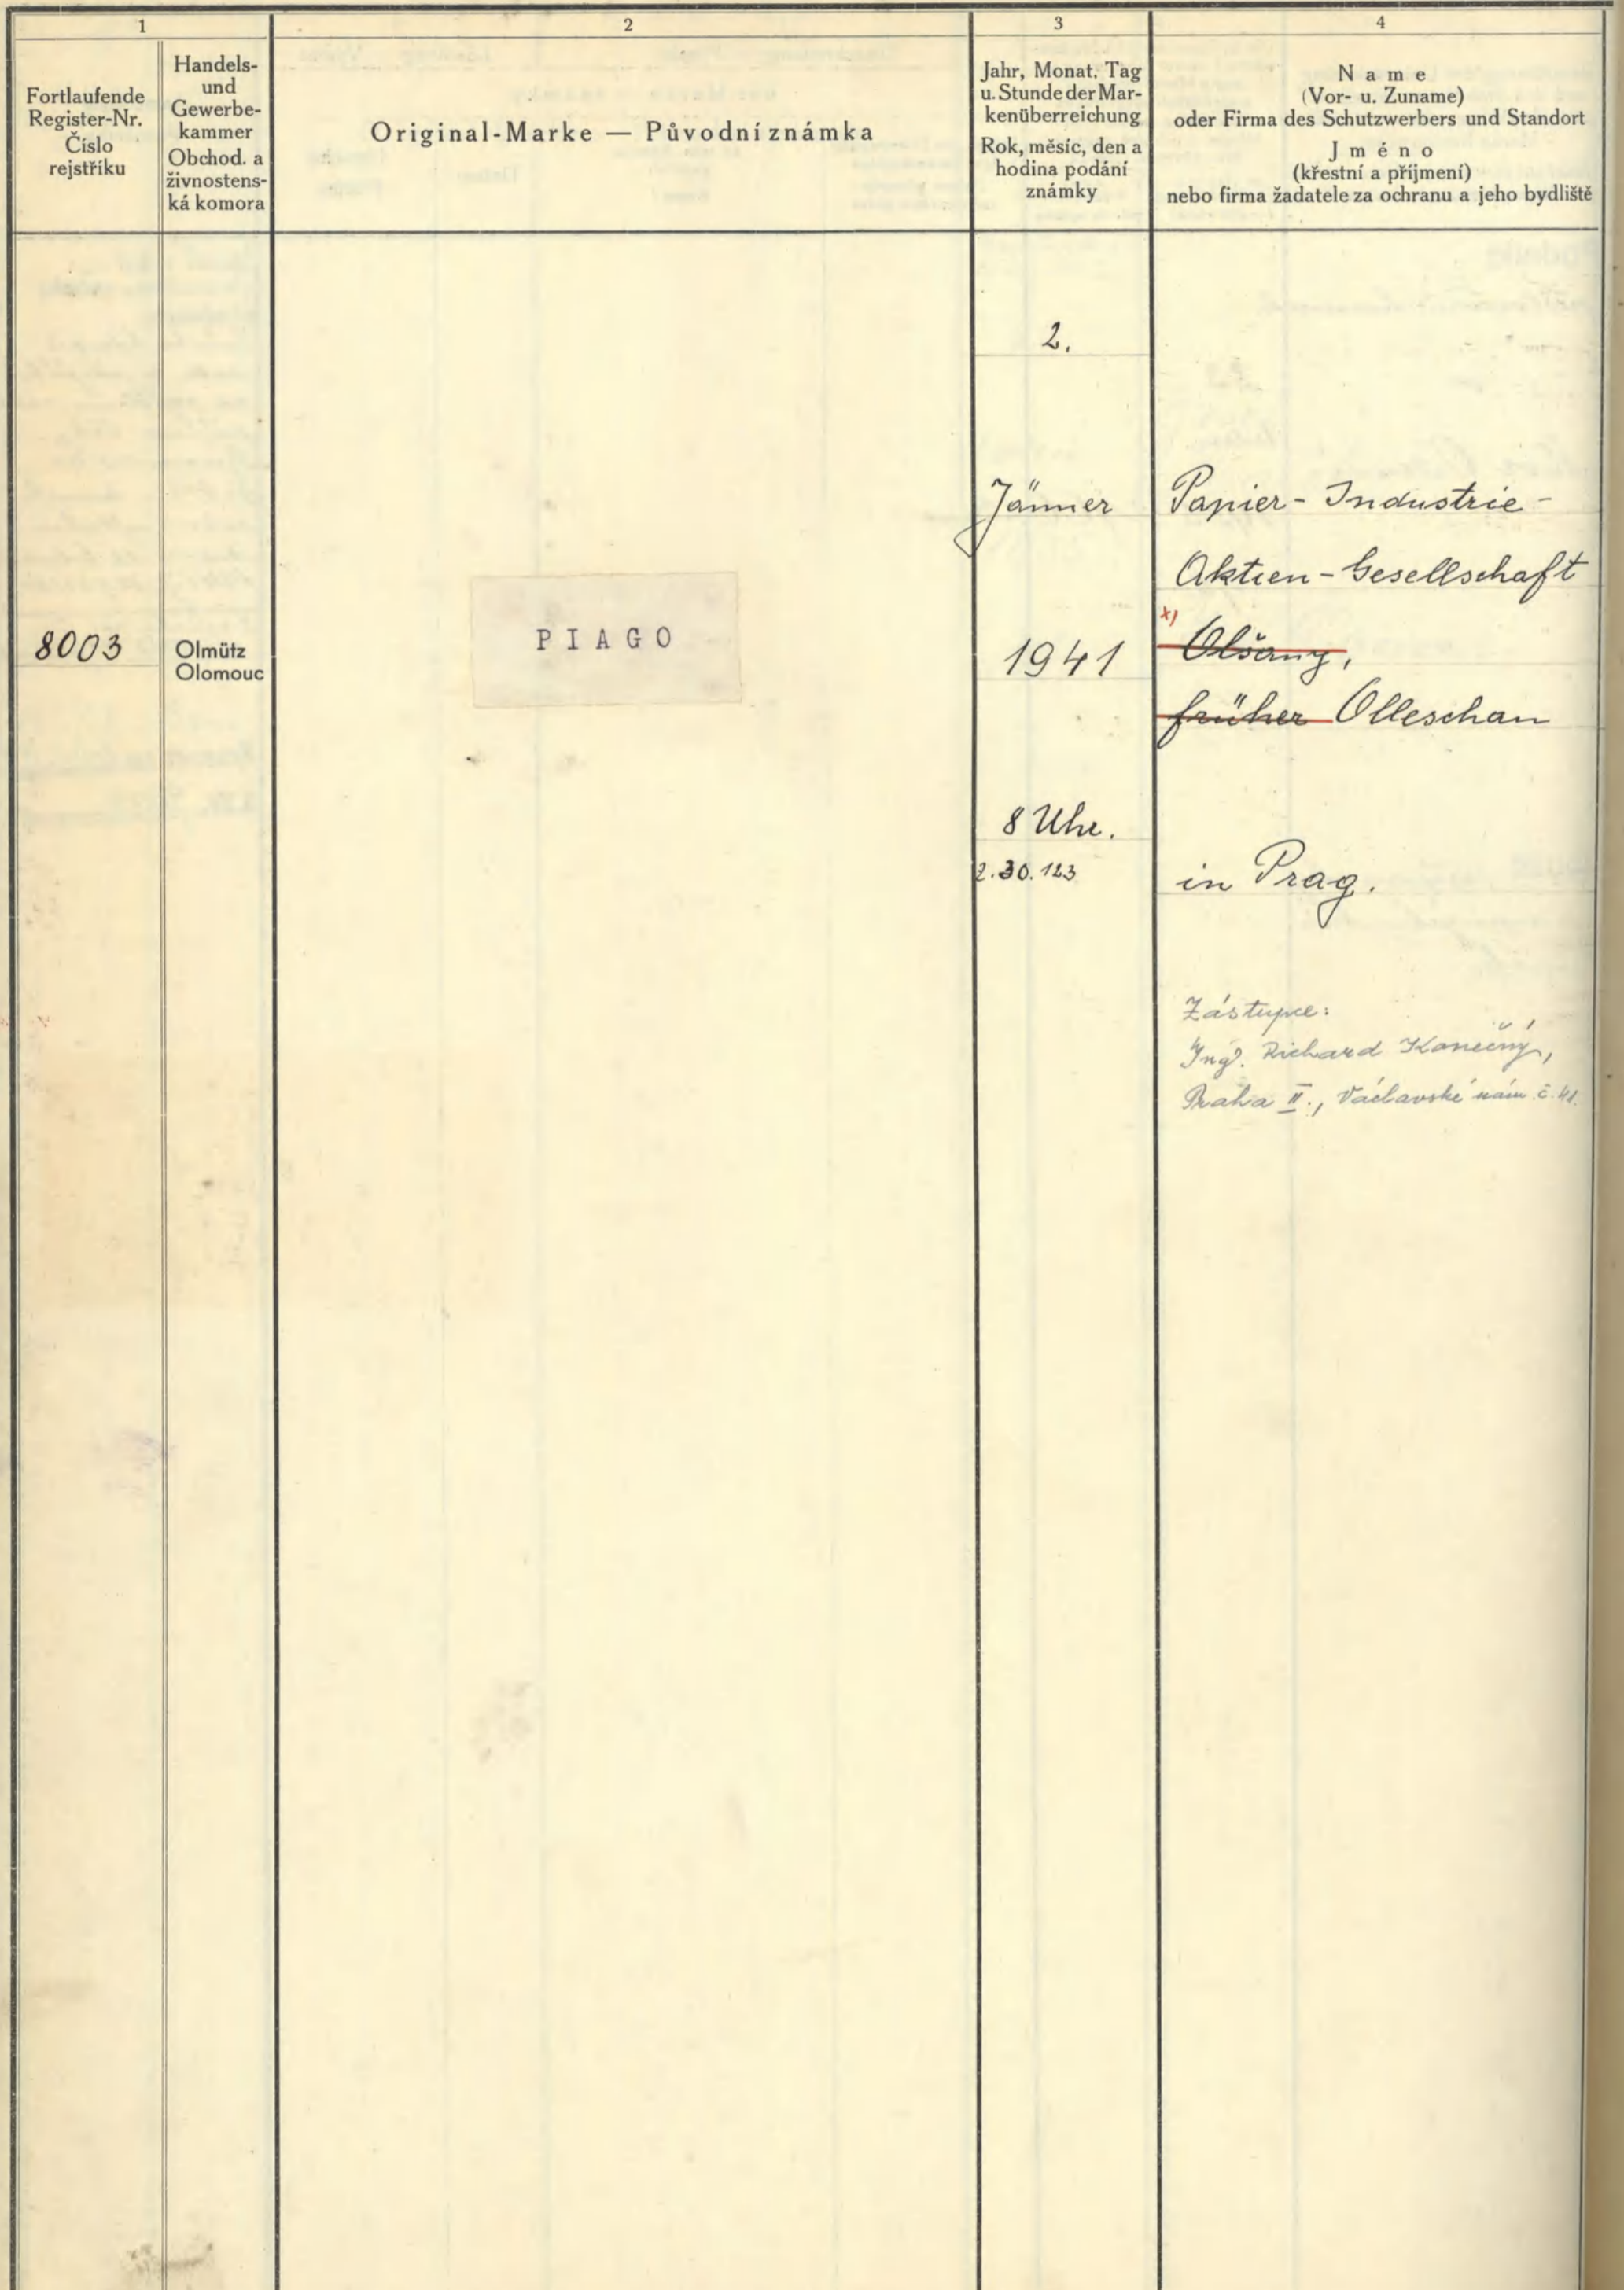 1
2
3
4
Fortlaufende
Register-Nr.
Číslo
rejstříku
Handels-
und
Gewerbe-
kammer
Obchod. a
živnostens-
ká komora
Original-Marke — Původní známka
Jahr, Monat, Tag
u. Stunde der Mar-
kenüberreichung
Rok, měsíc, den a
hodina podání
známky
Name
(Vor- u. Zuname)
oder Firma des Schutzwerbers und Standort
Jméno
(křestní a příjmení)
nebo firma žadatele za ochranu a jeho bydliště
8003
Olmütz
Olomouc
PIAGO
2.
Jänner
1941
8 Uhr.
2.30.123
Papier-Industrie-
Aktien-Gesellschaft
x)
Olšany,
früher Olleschan
in Prag.
Zástupce:
Ing. Richard Konečný,
Praha II., Václavské nám. č. 41.